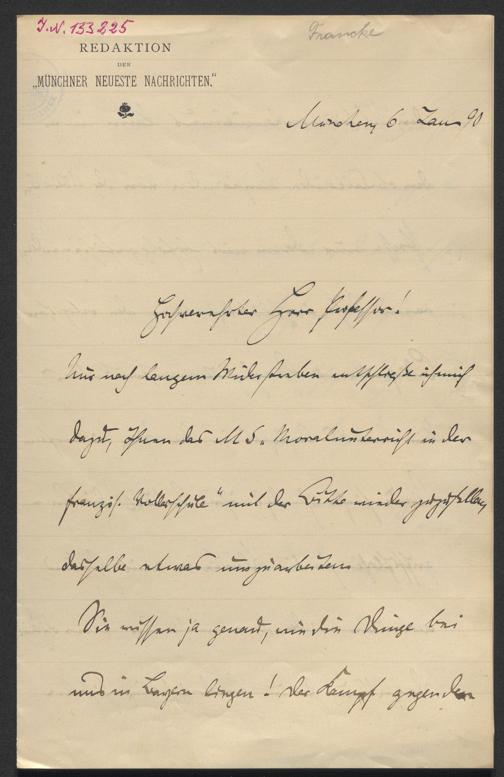 J.N. 133225
Francke
REDAKTION
DER
„MÜNCHNER NEUESTE NACHRICHTEN."
München, 6 Jan 90
Hochverehrter Herr Professor!
Nur nach langem Widerstreben entschließe ich mich
dazu, Ihnen das M S. „Moralunterricht in der
französ. Volksschule" mit der Bitte wieder zuzustellen,
dasselbe etwas umzuarbeiten.
Sie wissen ja genau, wie die Dinge bei
uns in Bayern liegen! Der Kampf gegen den